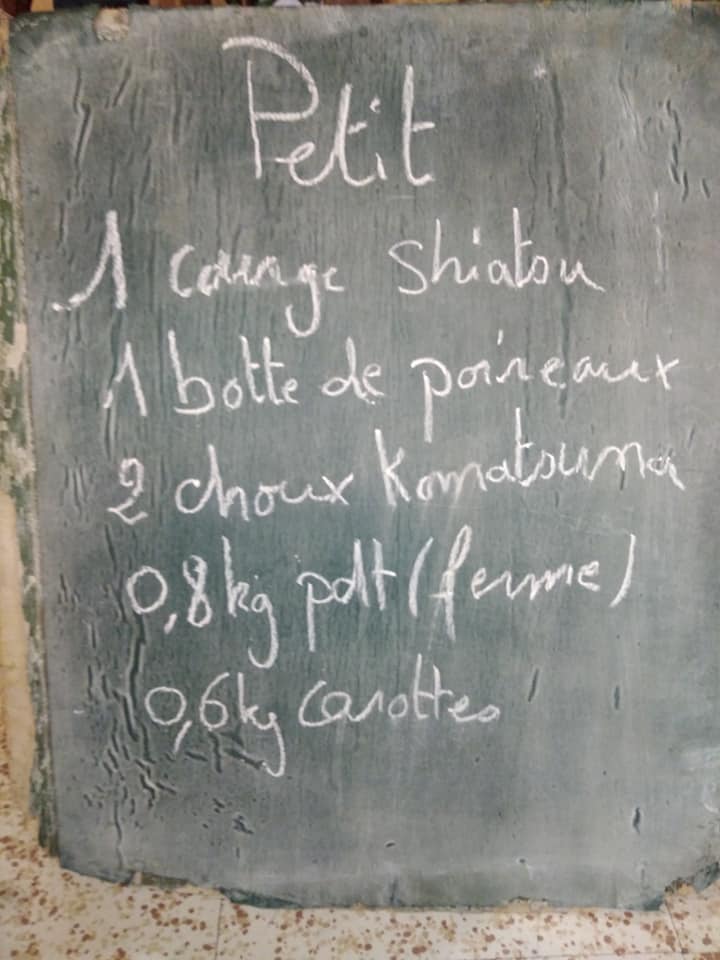 Petit
1 courge Shiatsu
1 botte de poireaux
2 choux Komatsuna
0,8kg pdt (ferme)
0,6kg carottes